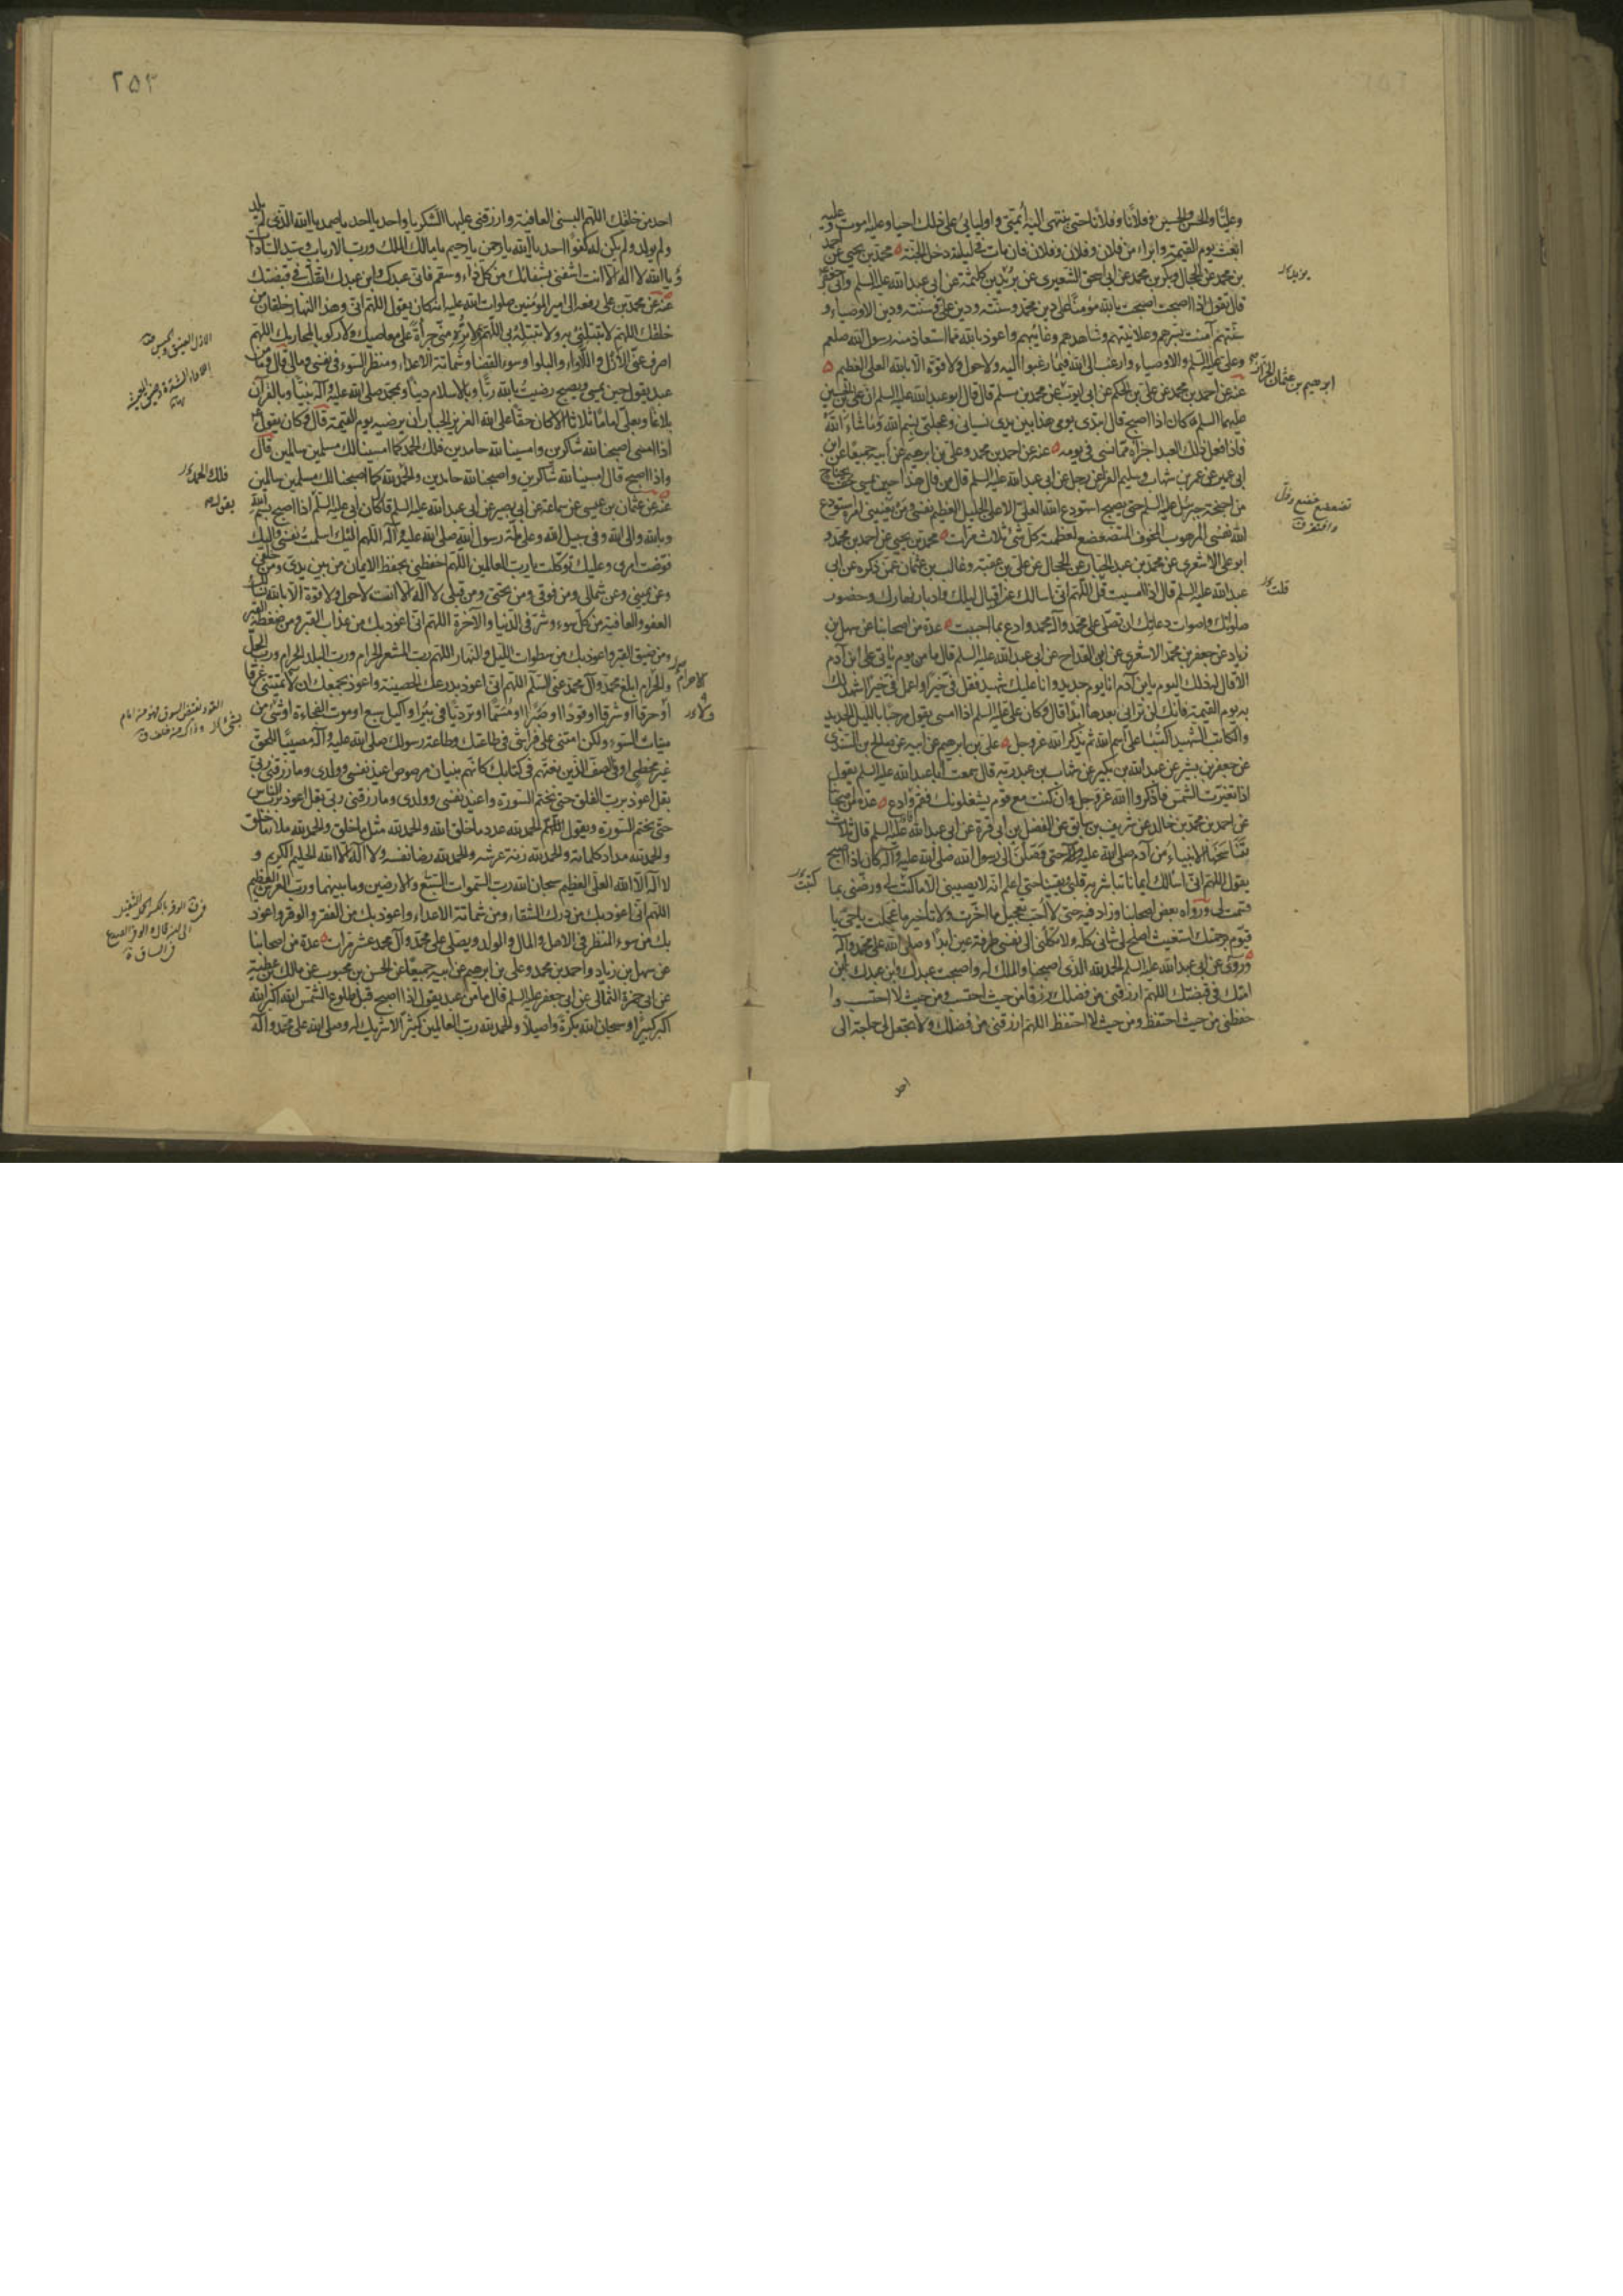 وعليًّا والحسن والحسين وفلانًا وفلانًا حتى ينتهي اليه أئمتي واوليائي على ذلك احيا وعليه اموت وعليه
ابعث يوم القيمة وابراء من فلان وفلان وفلان فان مات في ليلته دخل الجنة محمد بن يحيى عن احمد
بن محمد عن الحجال وبكر بن محمد عن ابي اسحق الشعيري عن يزيد بن كلثمة عن ابي عبد الله عليه السلم او عن ابي جعفر
قال تقول اذا اصبحت اصبحت بالله مؤمنًا على دين محمد وسنته ودين علي وسنته ودين الاوصياء و
سنتهم آمنت بسرهم وعلانيتهم وشاهدهم وغائبهم واعوذ بالله مما استعاذ منه رسول الله صلعم
وعلي عليه السلم والاوصياء وارغب الى الله فيما رغبوا اليه ولا حول ولا قوة الا بالله العلي العظيم
عنه عن احمد بن محمد عن علي بن الحكم عن ابي ايوب عن محمد بن مسلم قال قال ابو عبد الله عليه السلم ان علي بن الحسين
عليهما السلم كان اذا اصبح قال ابتدئ يومي هذا بين يدي نسياني وعجلتي بسم الله وما شاء الله
فاذا فعل ذلك العبد اجزاه مما نسي في يومه عنه عن احمد بن محمد وعلي بن ابرهيم عن أبيه جميعًا عن ابن
ابي عمير عن عمر بن شهاب وسليم الفراء عن رجل عن ابي عبد الله عليه السلم قال من قال هذا حين يمسي حف بجناح
من اجنحة جبرئيل عليه السلم حتى يصبح استودع الله العلي الاعلى الجليل العظيم نفسي ومن يعنيني امره استودع
الله نفسي المرهوب المخوف المتضعضع لعظمته كل شئ ثلاث مرات محمد بن يحيى عن احمد بن محمد و
ابو علي الاشعري عن محمد بن عبد الجبار عن الحجال عن علي بن عقبة وغالب بن عثمان عمن ذكره عن ابي
عبد الله عليه السلم قال اذا امسيت قل اللهم اني اسالك عند اقبال ليلك وادبار نهارك وحضور
صلواتك واصوات دعائك ان تصلي على محمد وآل محمد وادع بما احببت عدة من اصحابنا عن سهل بن
زياد عن جعفر بن محمد الاشعري عن ابن القداح عن ابي عبد الله عليه السلم قال ما من يوم ياتي على ابن آدم
الا قال له ذلك اليوم يا بن آدم انا يوم جديد وانا عليك شهيد فقل في خيرًا واعمل في خيرًا اشهد لك
به يوم القيمة فانك لن تراني بعدها ابدًا قال وكان علي عليه السلم اذا امسى يقول مرحبًا بالليل الجديد
والكاتب الشهيد اكتبا على اسم الله ثم يذكر الله عز وجل علي بن ابرهيم عن ابيه عن صالح بن السندي
عن جعفر بن بشير عن عبد الله بن بكير عن شهاب بن عبد ربه قال سمعت ابا عبد الله عليه السلم يقول
اذا تغيرت الشمس فاذكروا الله عز وجل وان كنت مع قوم يشغلونك فقم وادع عدة من اصحابنا
عن احمد بن محمد بن خالد عن شريف بن سابق عن الفضل بن ابي قرة عن ابي عبد الله عليه السلم قال ثلاث
تناسخها الانبياء من آدم صلى الله عليه وآله حتى وصلن الى رسول الله صلى الله عليه وآله كان اذا اصبح
يقول اللهم اني اسألك ايمانا تباشر به قلبي ويقينا حتى اعلم انه لا يصيبني الا ما كتبت لي ورضني بما
قسمت لي ورواه بعض اصحابنا وزاد فيه حتى لا احب تعجيل ما اخرت ولا تأخير ما عجلت يا حي يا
قيوم برحمتك استغيث اصلح لي شاني كله ولا تكلني الى نفسي طرفة عين ابدًا وصلى الله على محمد وآله
وروي عن ابي عبد الله عليه السلم الحمد لله الذي اصبحنا والملك له واصبحت عبدك وابن عبدك وابن
امتك في قبضتك اللهم ارزقني من فضلك رزقًا من حيث احتسب ومن حيث لا احتسب وا
حفظني من حيث احتفظ ومن حيث لا احتفظ اللهم ارزقني من فضلك ولا تجعل لي حاجة الى
ابرهيم بن عثمان الخزاز
تضعضع خضع وذل
وافتقر ق
قلت
كتبت
احد
٢٥٣
احد من خلقك اللهم البسني العافية وارزقني عليها الشكر يا واحد يا احد يا صمد يا الله الذي لم يلد
ولم يولد ولم يكن له كفوًا احد يا الله يا رحمن يا رحيم يا مالك الملك ورب الارباب وسيد السادات
ويا الله لا اله الا انت اشفني بشفائك من كل داء وسقم فاني عبدك وابن عبدك اتقلب في قبضتك
عنه عن محمد بن علي رفعه الى امير المؤمنين صلوات الله عليه انه كان يقول اللهم اني وهذا النهار خلقان من
خلقك اللهم لا تبتلني به ولا تبتله بي اللهم لا تره مني جرأة على معاصيك ولا ركوبا لمحارمك اللهم
اصرف عني الازل واللأواء والبلوا وسوء القضا وشماتة الاعداء ومنظر السوء في نفسي ومالي قال وما من
عبد يقول حين يمسي ويصبح رضيت بالله ربًّا وبالاسلام دينًا وبمحمد صلى الله عليه وآله نبيًّا وبالقرآن
بلاغًا وبعلي امامًا ثلاثا الا كان حقًّا على الله العزيز الجبار أن يرضيه يوم القيمة قال وكان يقول
اذا امسى اصبحنا لله شاكرين وامسينا لله حامدين فلك الحمد كما امسينا لك مسلمين سالمين قال
واذا اصبح قال امسينا لله شاكرين واصبحنا لله حامدين والحمد لله كما اصبحنا لك مسلمين سالمين
عنه عن عثمان بن عيسى عن سماعة عن ابي بصير عن ابي عبد الله عليه السلم قال كان ابي عليه السلم اذا اصبح بسم الله
وبالله والى الله وفي سبيل الله وعلى ملة رسول الله صلى الله عليه وآله اللهم اليك اسلمت نفسي واليك
فوضت امري وعليك توكلت يا رب العالمين اللهم احفظني بحفظ الايمان من بين يدي ومن خلفي
وعن يميني وعن شمالي ومن فوقي ومن تحتي ومن قبلي لا اله الا انت لا حول ولا قوة الا بالله نسألك
العفو والعافية من كل سوء وشر في الدنيا والآخرة اللهم اني اعوذ بك من عذاب القبر ومن ضغطة القبر
ومن ضيق القبر واعوذ بك من سطوات الليل والنهار اللهم رب المشعر الحرام ورب البلد الحرام ورب الحل
والحرام ابلغ محمدا وآل محمد عني السلم اللهم اني اعوذ بدرعك الحصينة واعوذ بجمعك ان لا تميتني غرقا
او حرقا او شرقا او قودًا او صبرًا او مسمًّا او ترديًا في بئر او اكيل سبع او موت الفجاءة او بشئ من
ميتات السوء ولكن امتني على فراشي في طاعتك وطاعة رسولك صلى الله عليه وآله مصيبًا للحق
غير مخطئ او في الصف الذين نعتهم في كتابك كانهم بنيان مرصوص اعيذ نفسي وولدي وما رزقني ربي
بقل اعوذ برب الفلق حتى يختم السورة واعيذ نفسي وولدي وما رزقني ربي بقل اعوذ برب الناس
حتى يختم السورة ويقول الحمد لله عدد ما خلق الله والحمد لله مثل ما خلق والحمد لله ملأ ما خلق
والحمد لله مداد كلماته والحمد لله زنة عرشه والحمد لله رضا نفسه ولا اله الا الله الحليم الكريم و
لا اله الا الله العلي العظيم سبحان الله رب السموات السبع والارضين وما بينهما ورب العرش العظيم
اللهم اني اعوذ بك من درك الشقاء ومن شماتة الاعداء واعوذ بك من الفقر والوقر واعوذ
بك من سوء المنظر في الاهل والمال والولد ويصلي على محمد وآل محمد عشر مرات عدة من اصحابنا
عن سهل بن زياد واحمد بن محمد وعلي بن ابرهيم عن ابيه جميعًا عن الحسن بن محبوب عن مالك بن عطية
عن ابي حمزة الثمالي عن ابي جعفر عليه السلم قال ما من عبد يقول اذا اصبح قبل طلوع الشمس الله اكبر الله
اكبر كبيرًا وسبحان الله بكرة واصيلًا والحمد لله رب العالمين كثيرًا لا شريك له وصلى الله على محمد وآله
الازل الضيق
فلك الحمد